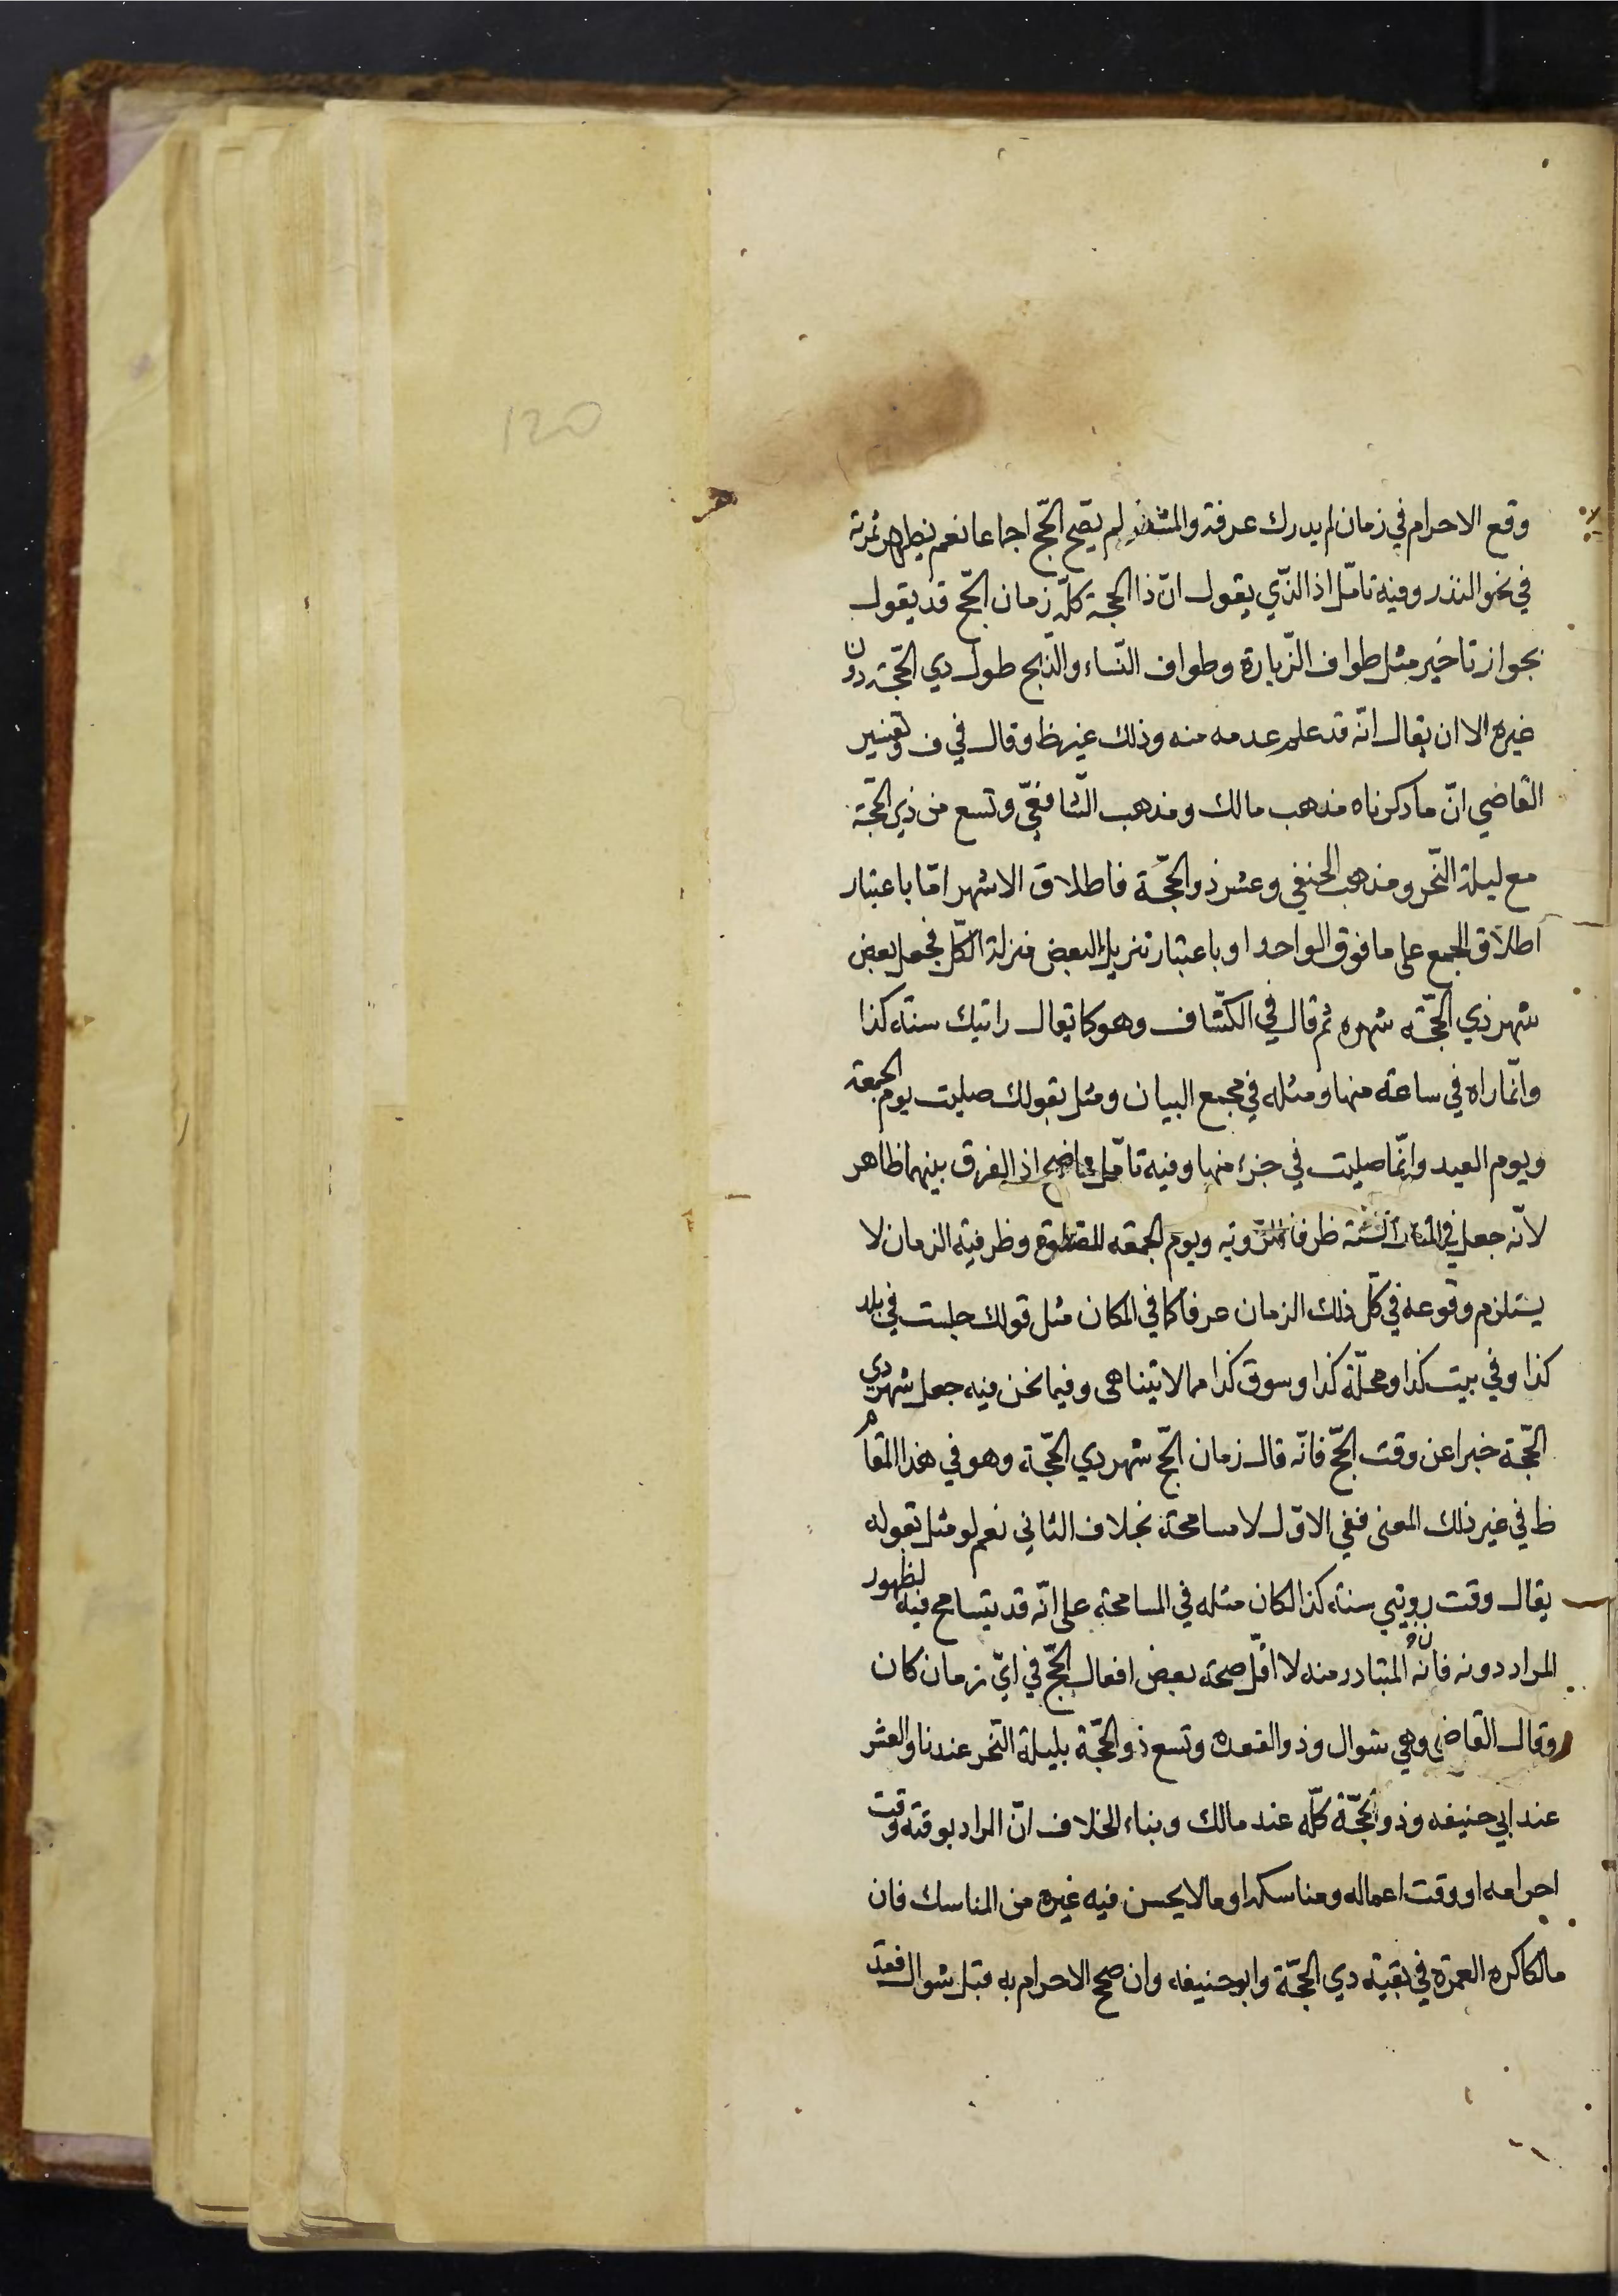 120
وقع الاحرام في زمان لم يدرك عرفة والمشعر لم يصح الحجّ اجماعا نعم يظهر ثمرته
في نحو النذر وفيه تامّل اذ الذّي يقول انّ ذا الحجة كلّه زمان الحجّ قد يقول
بجواز تاخير مثل طواف الزّيارة وطواف النّساء والذّبح طول دي الحّجة دون
غيره الا ان يقال انّه قد علم عدمه منه وذلك غير ظ وقال في ف وتفسير
القاضي انّ ما ذكرناه مذهب مالك ومذهب الشّافعّي وتسع من ذي الحّجة
مع ليلة النّحر ومذهب الحنفي وعشر ذو الحجّة فاطلاق الاشهر امّا باعتبار
اطلاق الجمع على ما فوق الواحد او باعتبار تنزيل البعض منزلة الكّل فجعل بعض
شهر ذي الحّجة شهره ثم قال في الكشّاف وهو كما يقال رايتك سنة كذا
وانّما راه في ساعة منها ومثله في مجمع البيان ومثل بقولك صليت يوم الجمعة
ويوم العيد وانّما صليت في جزء منها وفيه تامّل واضح اذ الفرق بينهما ظاهر
لانّه جعل في المثال السّنة ظرفا للرّوية ويوم الجمعه للصّلوة وظرفية الزمان لا
يستلزم وقوعه في كلّ ذلك الزمان عرفا كما في المكان مثل قولك جلست في بلد
كذا وفي بيت كذا ومحلّة كذا وسوق كذا مما لا يتناهى وفيما نحن فيه جعل شهر دي
الحّجة خبرا عن وقت الحّج فانّه قال زمان الحّج شهر دي الحّجة وهو في هذا المقام
ظ في غير ذلك المعنى ففي الاوّل لا مسامحة بخلاف الثاني نعم لو مثل بقوله
يقال وقت رويتي سنة كذا لكان مثله في المسامحة على انّه قد يتسامح فيه لظهور
المراد دونه فانه المتبادر منه لا اقلّ صحة بعض افعال الحّج في ايّ زمان كان
وقال القاضي وهي شوال وذو القعده وتسع ذو الحّجة بليلة النّحر عندنا والعشر
عند ابي حنيفه وذو الحجّة كلّه عند مالك وبناء الخلاف انّ المراد بوقته وقت
احرامه او وقت اعماله ومناسكه او ما لا يحسن فيه غيره من المناسك فان
مالكا كره العمرة في بقية دي الحجّة وابو حنيفه وان صحّ الاحرام به قبل شوال فقد